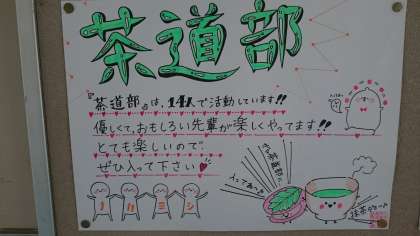 茶道部
茶道部は、14人で活動しています!!
優しくて、おもしろい先輩が楽しくやってます!!
とても楽しいので
ぜひ入って下さい
ザ・茶道部♡
入ってね〜♪